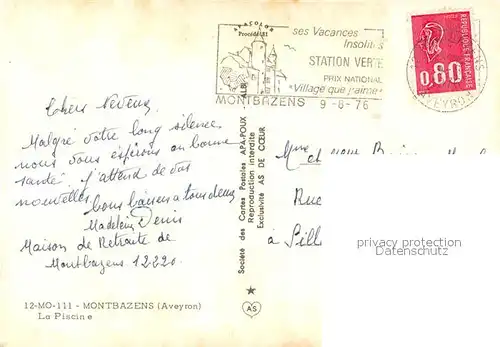 APASOLOR
Procédé
ses Vacances
Insolites
STATION VERTE
PRIX NATIONAL
"Village que j'aime"
MONTBAZENS 9-8-76
REPUBLIQUE FRANCAISE
0,80
AVEYRON
Chers Neveux
Malgré votre long silence
nous vous espérons en bonne
santé. J'attend de vos
nouvelles.
bons baisers a tous deux
Madeleine Denis
Maison de Retraite de
Montbazens 12220
Mme et
Rue
à Sill
privacy protection
Datenschutz
Société des Cartes Postales APA-POUX ALBI
Reproduction interdite
Exclusivité AS DE CŒUR
AS
12-MO-111 - MONTBAZENS (Aveyron)
La Piscine